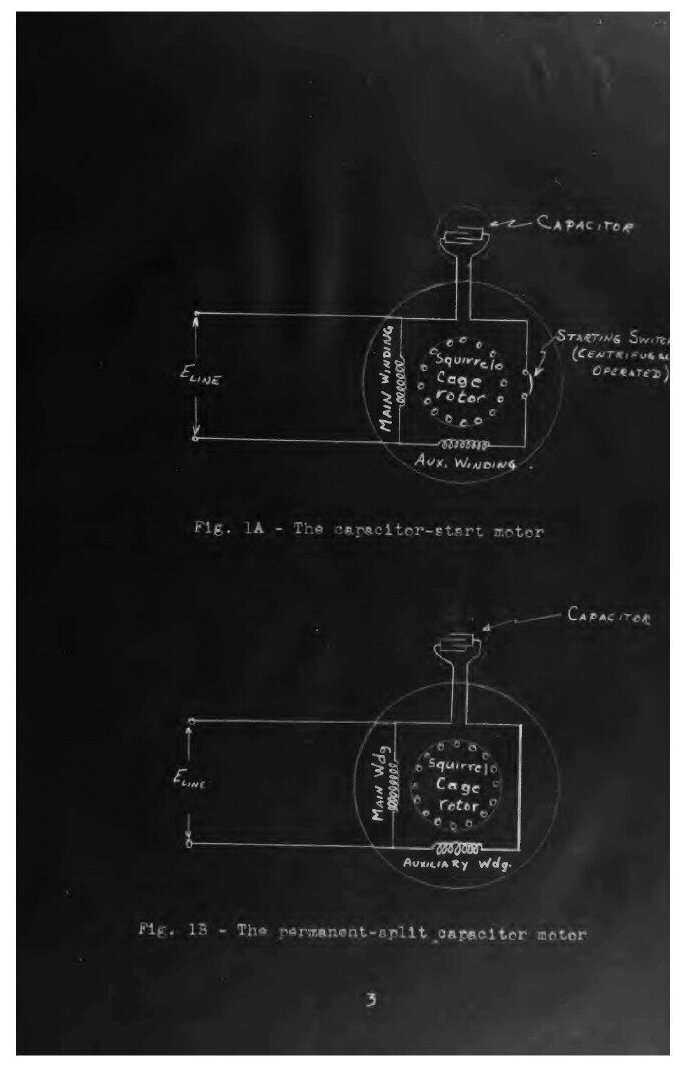 CAPACITOR
STARTING
(
OPERATED)
ELINE
MAIN WINDING
Squirrel
Cage
rotor
AUX. WINDING.
Fig. 1A - The capacitor-start motor
CAPACITOR
ELINE
MAIN Wdg
Squirrel
Cage
rotor
AUXILIARY Wdg.
Fig. 1B - The permanent-split capacitor motor
3